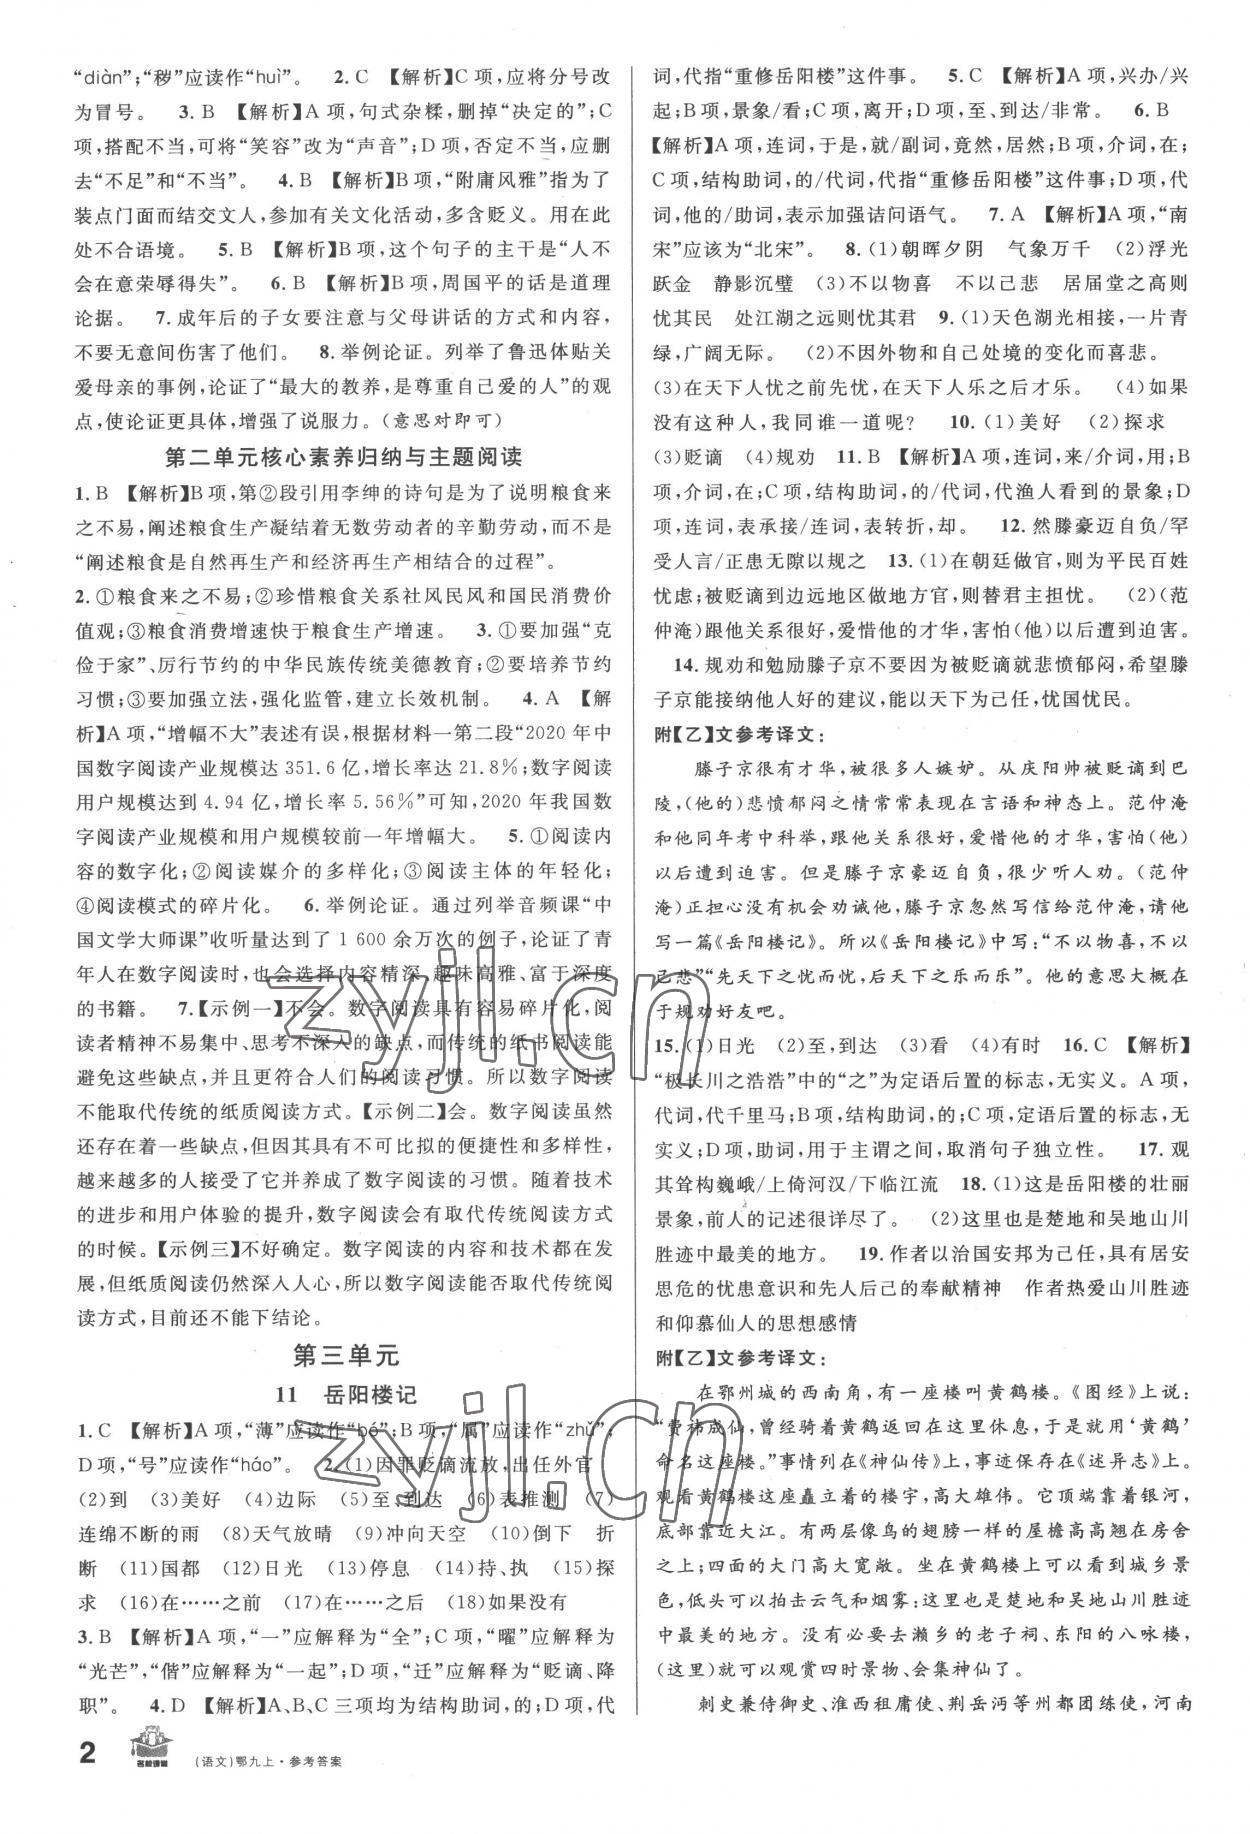 “diàn”;“秽”应读作“huì”。　2. C　【解析】C项,应将分号改
为冒号。　3. B　【解析】A项,句式杂糅,删掉“决定的”;C
项,搭配不当,可将“笑容”改为“声音”;D项,否定不当,应删
去“不足”和“不当”。　4. B　【解析】B项,“附庸风雅”指为了
装点门面而结交文人,参加有关文化活动,多含贬义。用在此
处不合语境。　5. B　【解析】B项,这个句子的主干是“人不
会在意荣辱得失”。　6. B　【解析】B项,周国平的话是道理
论据。　7. 成年后的子女要注意与父母讲话的方式和内容,
不要无意间伤害了他们。　8. 举例论证。列举了鲁迅体贴关
爱母亲的事例,论证了“最大的教养,是尊重自己爱的人”的观
点,使论证更具体,增强了说服力。（意思对即可）
第二单元核心素养归纳与主题阅读
1. B　【解析】B项,第②段引用李绅的诗句是为了说明粮食来
之不易,阐述粮食生产凝结着无数劳动者的辛勤劳动,而不是
“阐述粮食是自然再生产和经济再生产相结合的过程”。
2. ①粮食来之不易;②珍惜粮食关系社风民风和国民消费价
值观;③粮食消费增速快于粮食生产增速。　3. ①要加强“克
俭于家”、厉行节约的中华民族传统美德教育;②要培养节约
习惯;③要加强立法,强化监管,建立长效机制。　4. A　【解
析】A项,“增幅不大”表述有误,根据材料一第二段“2020年中
国数字阅读产业规模达351.6亿,增长率达21.8%;数字阅读
用户规模达到4.94亿,增长率5.56%”可知,2020年我国数
字阅读产业规模和用户规模较前一年增幅大。　5. ①阅读内
容的数字化;②阅读媒介的多样化;③阅读主体的年轻化;
④阅读模式的碎片化。　6. 举例论证。通过列举音频课“中
国文学大师课”收听量达到了1 600余万次的例子,论证了青
年人在数字阅读时,也会选择内容精深、趣味高雅、富于深度
的书籍　7.【示例一】不会。数字阅读具有容易碎片化,阅
读者精神不易集中、思考不深入的缺点,而传统的纸书阅读能
避免这些缺点,并且更符合人们的阅读习惯。所以数字阅读
不能取代传统的纸质阅读方式。【示例二】会。数字阅读虽然
还存在着一些缺点,但因其具有不可比拟的便捷性和多样性,
越来越多的人接受了它并养成了数字阅读的习惯。随着技术
的进步和用户体验的提升,数字阅读会有取代传统阅读方式
的时候。【示例三】不好确定。数字阅读的内容和技术都在发
展,但纸质阅读仍然深入人心,所以数字阅读能否取代传统阅
读方式,目前还不能下结论。
第三单元
11　岳阳楼记
1. C　【解析】A项,“薄”应读作“bó”;B项,“属”应读作“zhǔ”;
D项,“号”应读作“háo”。　2. (1)因罪贬谪流放,出任外官
(2)到　(3)美好　(4)边际　(5)至、到达　(6)表推测　(7)
连绵不断的雨　(8)天气放晴　(9)冲向天空　(10)倒下　折
断　(11)国都　(12)日光　(13)停息　(14)持、执　(15)探
求　(16)在……之前　(17)在……之后　(18)如果没有
3. B　【解析】A项,“一”应解释为“全”;C项,“曜”应解释为
“光芒”,“偕”应解释为“一起”;D项,“迁”应解释为“贬谪、降
职”。　4. D　【解析】A、B、C三项均为结构助词,的;D项,代
词,代指“重修岳阳楼”这件事。　5. C　【解析】A项,兴办/兴
起;B项,景象/看;C项,离开;D项,至、到达/非常。　6. B
【解析】A项,连词,于是,就/副词,竟然,居然;B项,介词,在;
C项,结构助词,的/代词,代指“重修岳阳楼”这件事;D项,代
词,他的/助词,表示加强诘问语气。　7. A　【解析】A项,“南
宋”应该为“北宋”。　8. (1)朝晖夕阴　气象万千　(2)浮光
跃金　静影沉璧　(3)不以物喜　不以己悲　居庙堂之高则
忧其民　处江湖之远则忧其君　9. (1)天色湖光相接,一片青
绿,广阔无际。　(2)不因外物和自己处境的变化而喜悲。
(3)在天下人忧之前先忧,在天下人乐之后才乐。　(4)如果
没有这种人,我同谁一道呢?　10. (1)美好　(2)探求
(3)贬谪　(4)规劝　11. B　【解析】A项,连词,来/介词,用;B
项,介词,在;C项,结构助词,的/代词,代渔人看到的景象;D
项,连词,表承接/连词,表转折,却。　12. 然滕豪迈自负/罕
受人言/正患无隙以规之　13. (1)在朝廷做官,则为平民百姓
忧虑;被贬谪到边远地区做地方官,则替君主担忧。　(2)(范
仲淹)跟他关系很好,爱惜他的才华,害怕(他)以后遭到迫害。
14. 规劝和勉励滕子京不要因为被贬谪就悲愤郁闷,希望滕
子京能接纳他人好的建议,能以天下为己任,忧国忧民。
附【乙】文参考译文:
滕子京很有才华,被很多人嫉妒。从庆阳帅被贬谪到巴
陵,(他的)悲愤郁闷之情常常表现在言语和神态上。范仲淹
和他同年考中科举,跟他关系很好,爱惜他的才华,害怕(他)
以后遭到迫害。但是滕子京豪迈自负,很少听人劝。(范仲
淹)正担心没有机会劝诫他,滕子京忽然写信给范仲淹,请他
写一篇《岳阳楼记》。所以《岳阳楼记》中写:“不以物喜,不以
己悲”“先天下之忧而忧,后天下之乐而乐”。他的意思大概在
于规劝好友吧。
15. (1)日光　(2)至,到达　(3)看　(4)有时　16. C　【解析】
“极长川之浩浩”中的“之”为定语后置的标志,无实义。A项,
代词,代千里马;B项,结构助词,的;C项,定语后置的标志,无
实义;D项,助词,用于主谓之间,取消句子独立性。　17. 观
其耸构巍峨/上倚河汉/下临江流　18. (1)这是岳阳楼的壮丽
景象,前人的记述很详尽了。　(2)这里也是楚地和吴地山川
胜迹中最美的地方。　19. 作者以治国安邦为己任,具有居安
思危的忧患意识和先人后己的奉献精神　作者热爱山川胜迹
和仰慕仙人的思想感情
附【乙】文参考译文:
在鄂州城的西南角,有一座楼叫黄鹤楼。《图经》上说:
“费祎成仙,曾经骑着黄鹤返回在这里休息,于是就用‘黄鹤’
命名这座楼。”事情列在《神仙传》上,事迹保存在《述异志》上。
观看黄鹤楼这座矗立着的楼宇,高大雄伟。它顶端靠着银河,
底部靠近大江。有两层像鸟的翅膀一样的屋檐高高翘在房舍
之上;四面的大门高大宽敞。坐在黄鹤楼上可以看到城乡景
色,低可以拍击云气和烟雾:这里也是楚地和吴地山川胜迹
中最美的地方。没有必要去濑乡的老子祠、东阳的八咏楼,
(这里)就可以观赏四时景物、会集神仙了。
刺史兼侍御史、淮西租庸使、荆岳沔等州都团练使,河南
2
名校课堂
(语文)鄂九上·参考答案
zyjl.cn
zyjl.cn